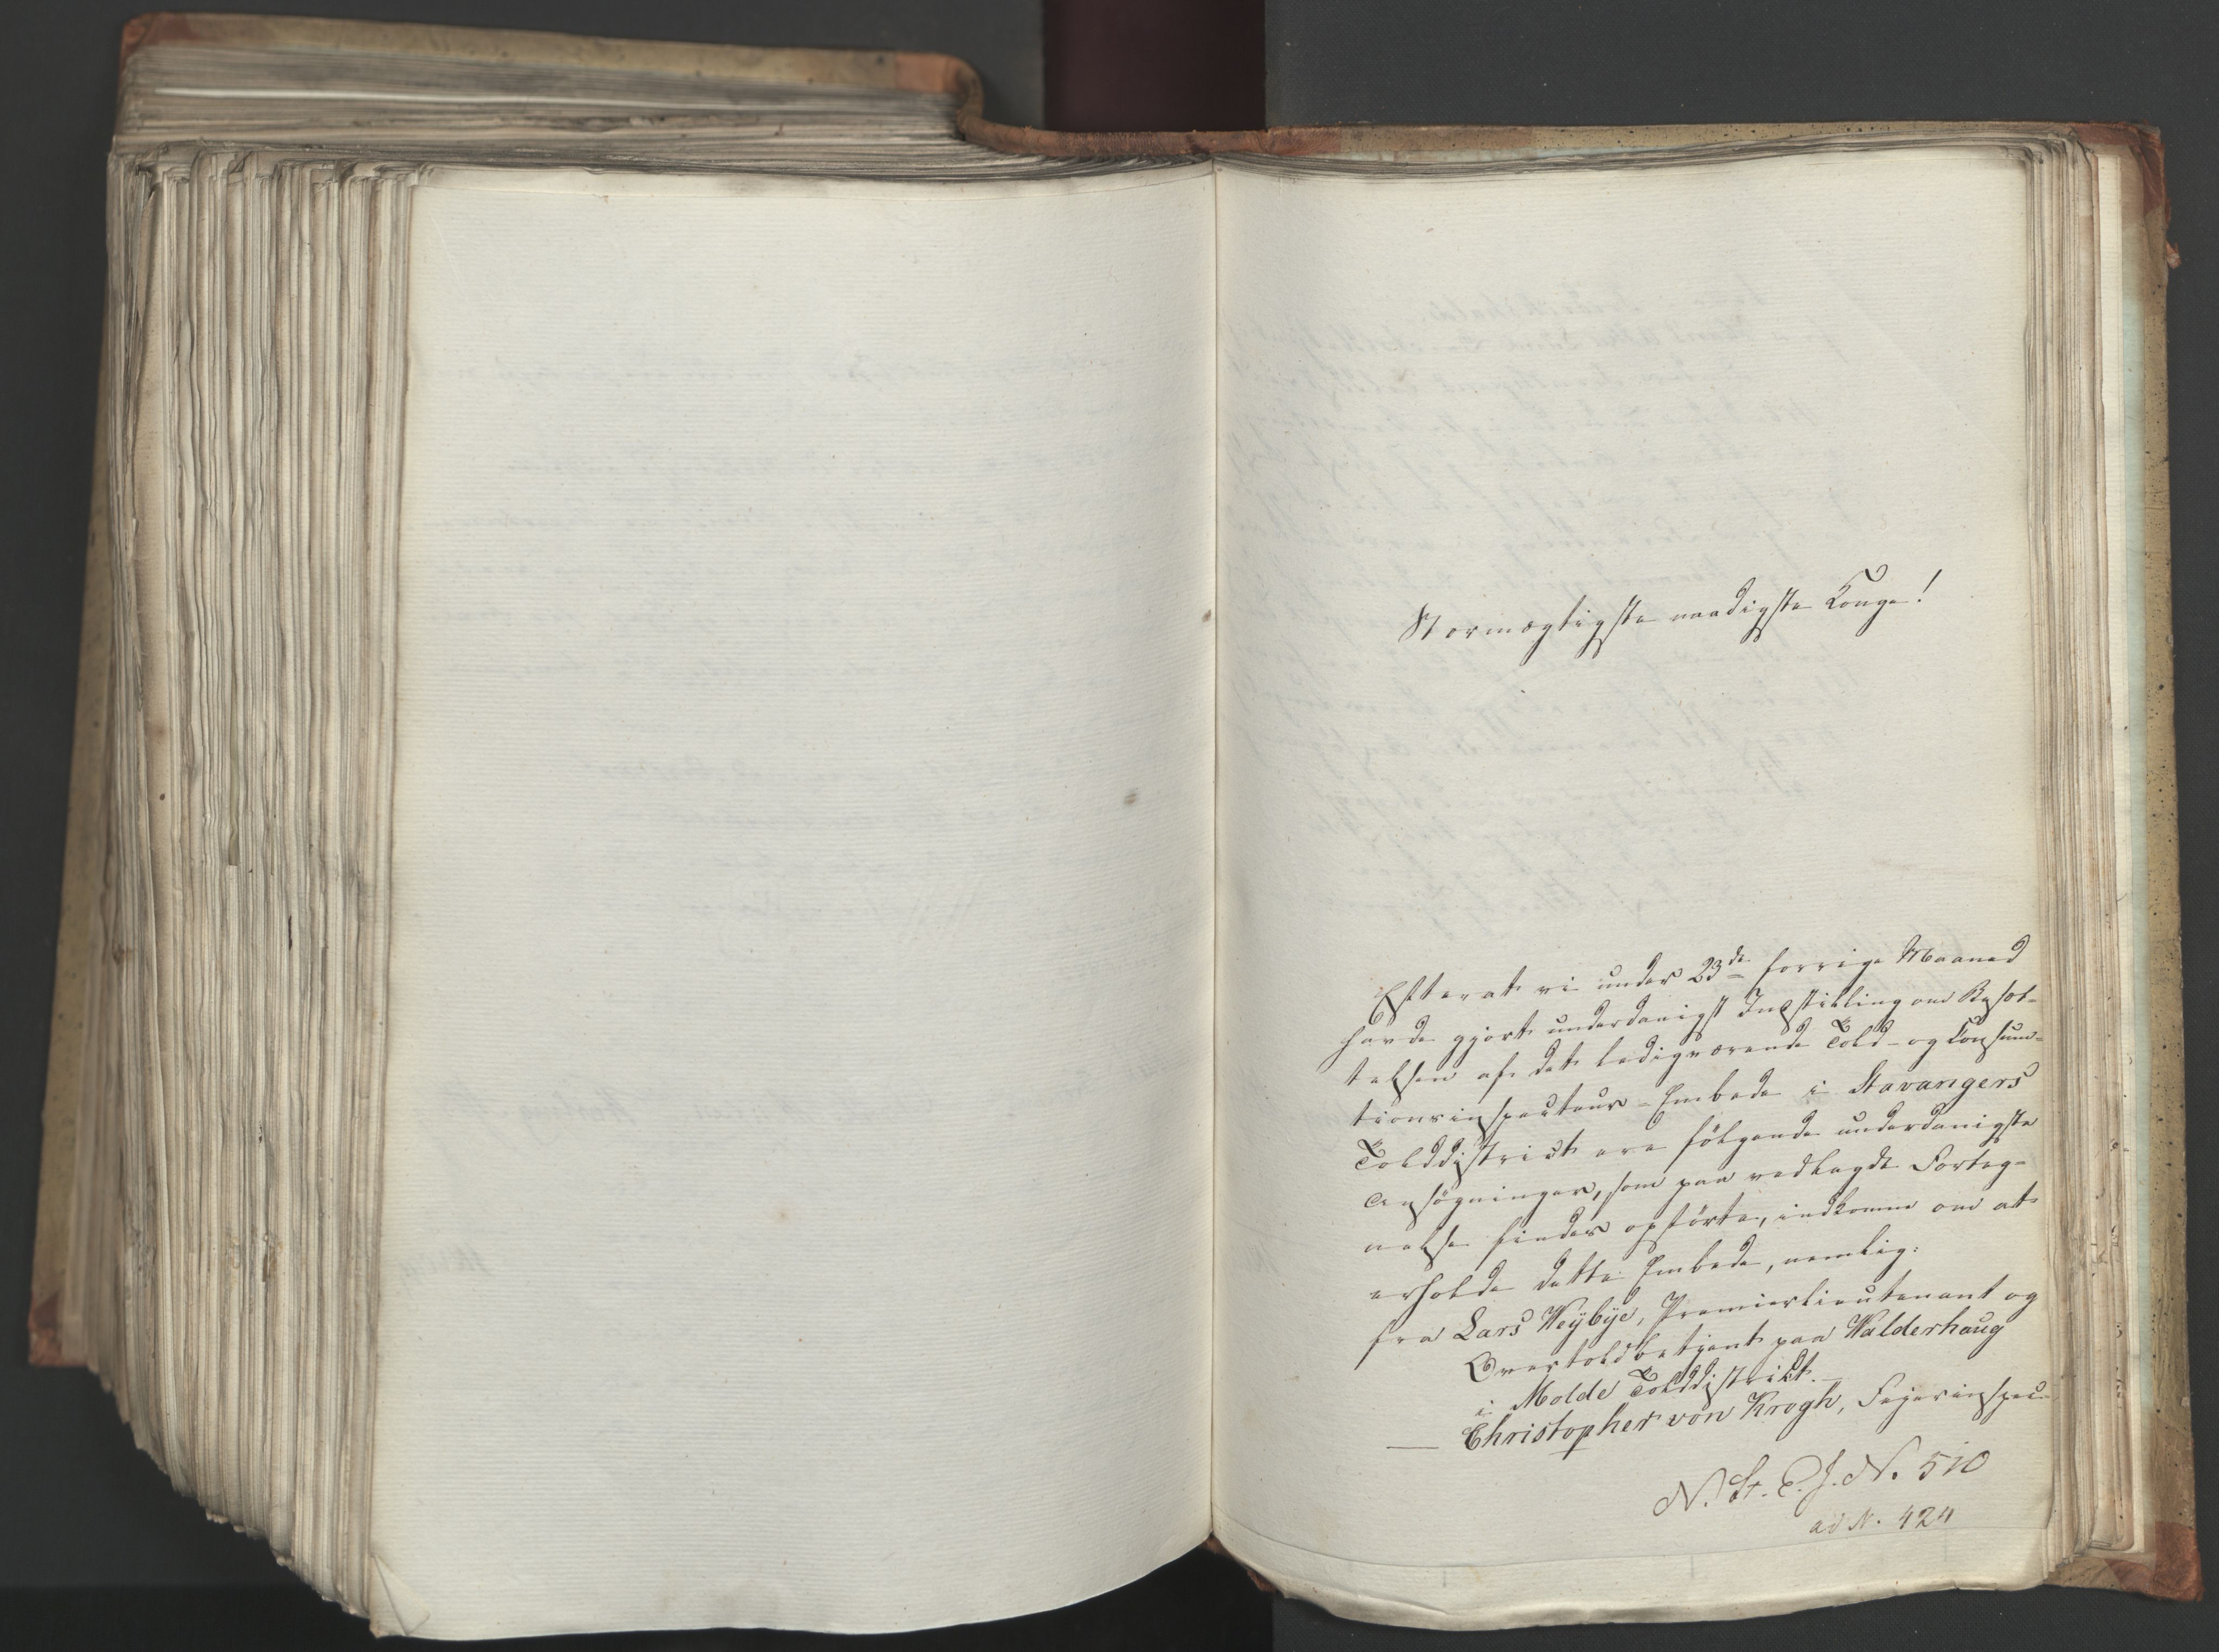 Stormægtigste naadigste Konge!
Efterat vi under 23de forrige Maaned
havde gjort underdanigst Indstilling om Besæt-
telsen af det ledigværende Told- og Consum-
tionsinspecteur-Embede i Stavangers
Tolddistrict ere følgende underdanigste
Ansøgninger, som paa vedlagde Forteg-
nelse findes opførte, indkomne om at
erholde dette Embede, nemlig:
fra Lars Weÿbÿe, Premierlieutenant og
Overtoldbetjent paa Walderhaug
i Molde Tolddistrikt.—
— Christopher von Krogh, Veÿerinspec-
N. St. E. J. N. 510
ad N. 424